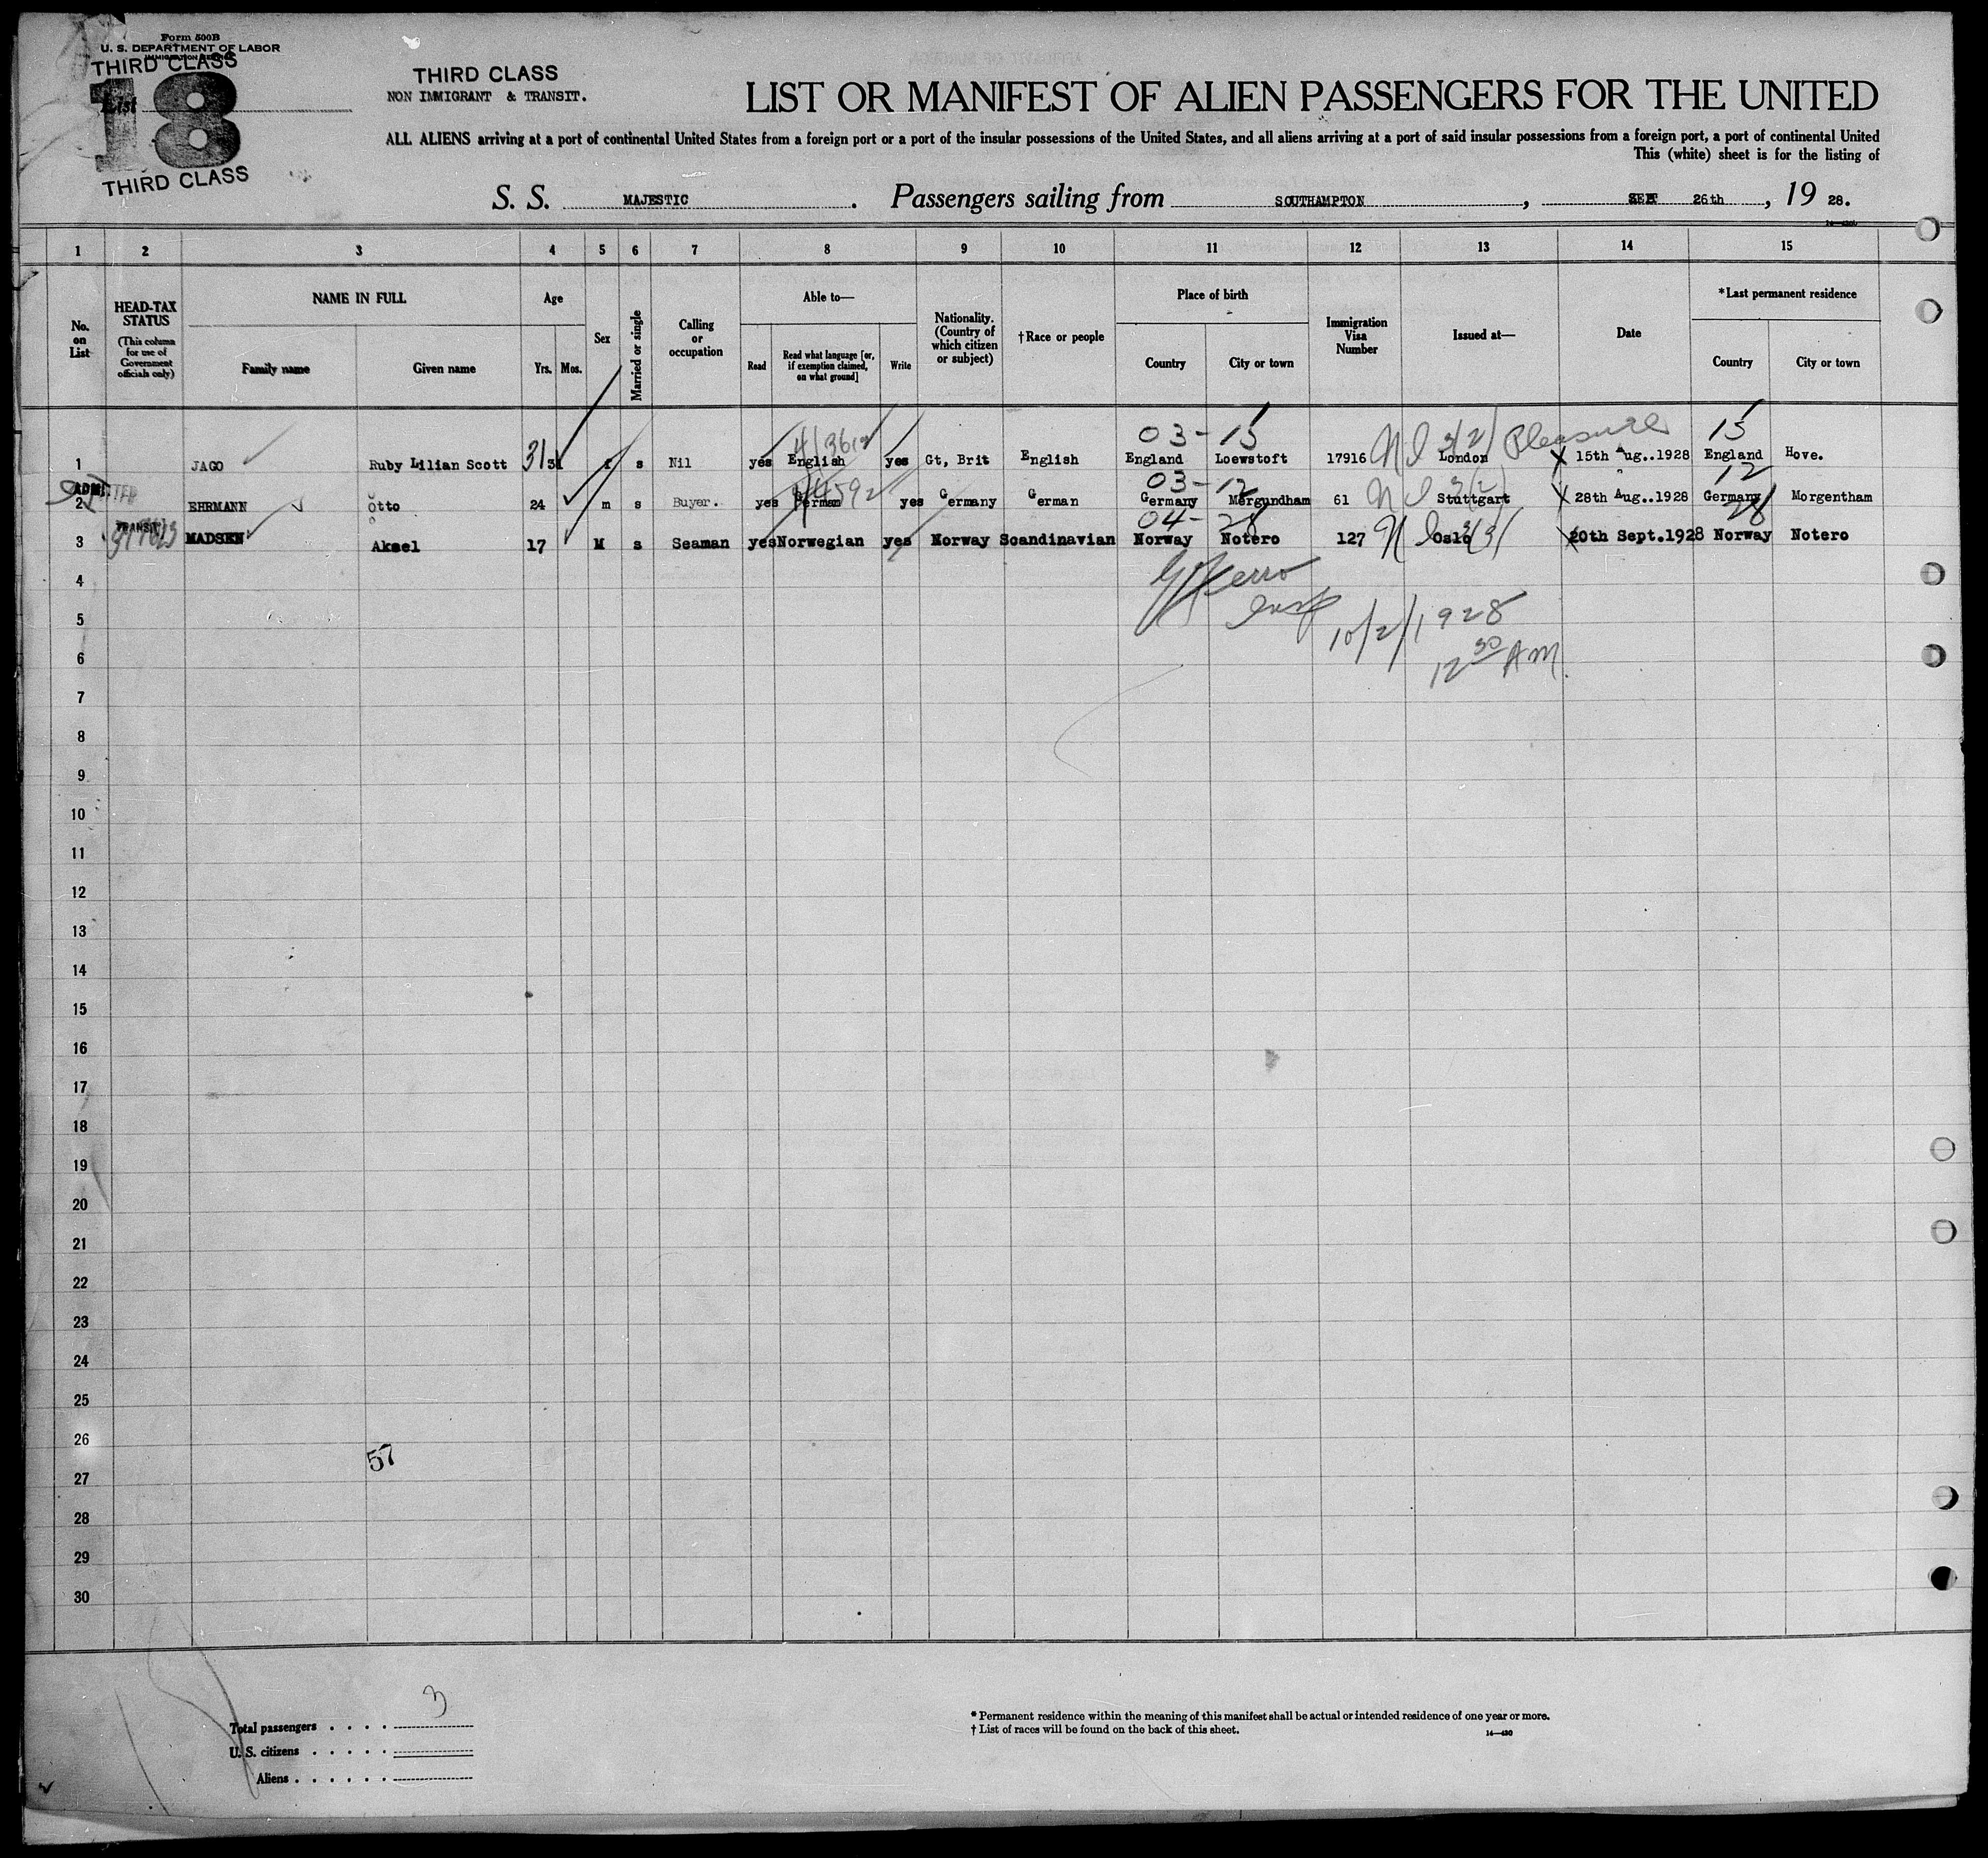 Form 500B
U. S. DEPARTMENT OF LABOR
THIRD CLASS
List 18
THIRD CLASS
THIRD CLASS
NON IMMIGRANT & TRANSIT.
LIST OR MANIFEST OF ALIEN PASSENGERS FOR THE UNITED
ALL ALIENS arriving at a port of continental United States from a foreign port or a port of the insular possessions of the United States, and all aliens arriving at a port of said insular possessions from a foreign port, a port of continental United
This (white) sheet is for the listing of
S. S. MAJESTIC. Passengers sailing from SOUTHAMPTON, SEPT 26th, 19 28.
1 2 3 4 5 6 7 8 9 10 11 12 13 14 15
No. on List
HEAD-TAX STATUS
(This column for use of Government officials only)
NAME IN FULL
Family name Given name
Age
Yrs. Mos.
Sex
Married or single
Calling or occupation
Able to—
Read
Read what language [or, if exemption claimed, on what ground]
Write
Nationality. (Country of which citizen or subject)
†Race or people
Place of birth
Country City or town
Immigration Visa Number
Issued at—
Date
*Last permanent residence
Country City or town
03-15 Pleasure 15
1 JAGO Ruby Lilian Scott 31 f s Nil yes English yes Gt, Brit English England Loewstoft 17916 London 15th Aug..1928 England Hove.
ADMITTED 03-12 12
2 EHRMANN Otto 24 m s Buyer. yes German yes Germany German Germany Mergundham 61 Stuttgart 28th Aug..1928 Germany Morgentham
TRANSIT 04-28 28
3 MADSEN Aksel 17 M s Seaman yes Norwegian yes Norway Scandinavian Norway Notero 127 Oslo 20th Sept.1928 Norway Notero
4
5 Insp 10/2/1928
6 12 30 AM.
7
8
9
10
11
12
13
14
15
16
17
18
19
20
21
22
23
24
25
26
57
27
28
29
30
Total passengers . . . . 3
U. S. citizens . . . . .
Aliens . . . . . .
* Permanent residence within the meaning of this manifest shall be actual or intended residence of one year or more.
† List of races will be found on the back of this sheet. 14—430